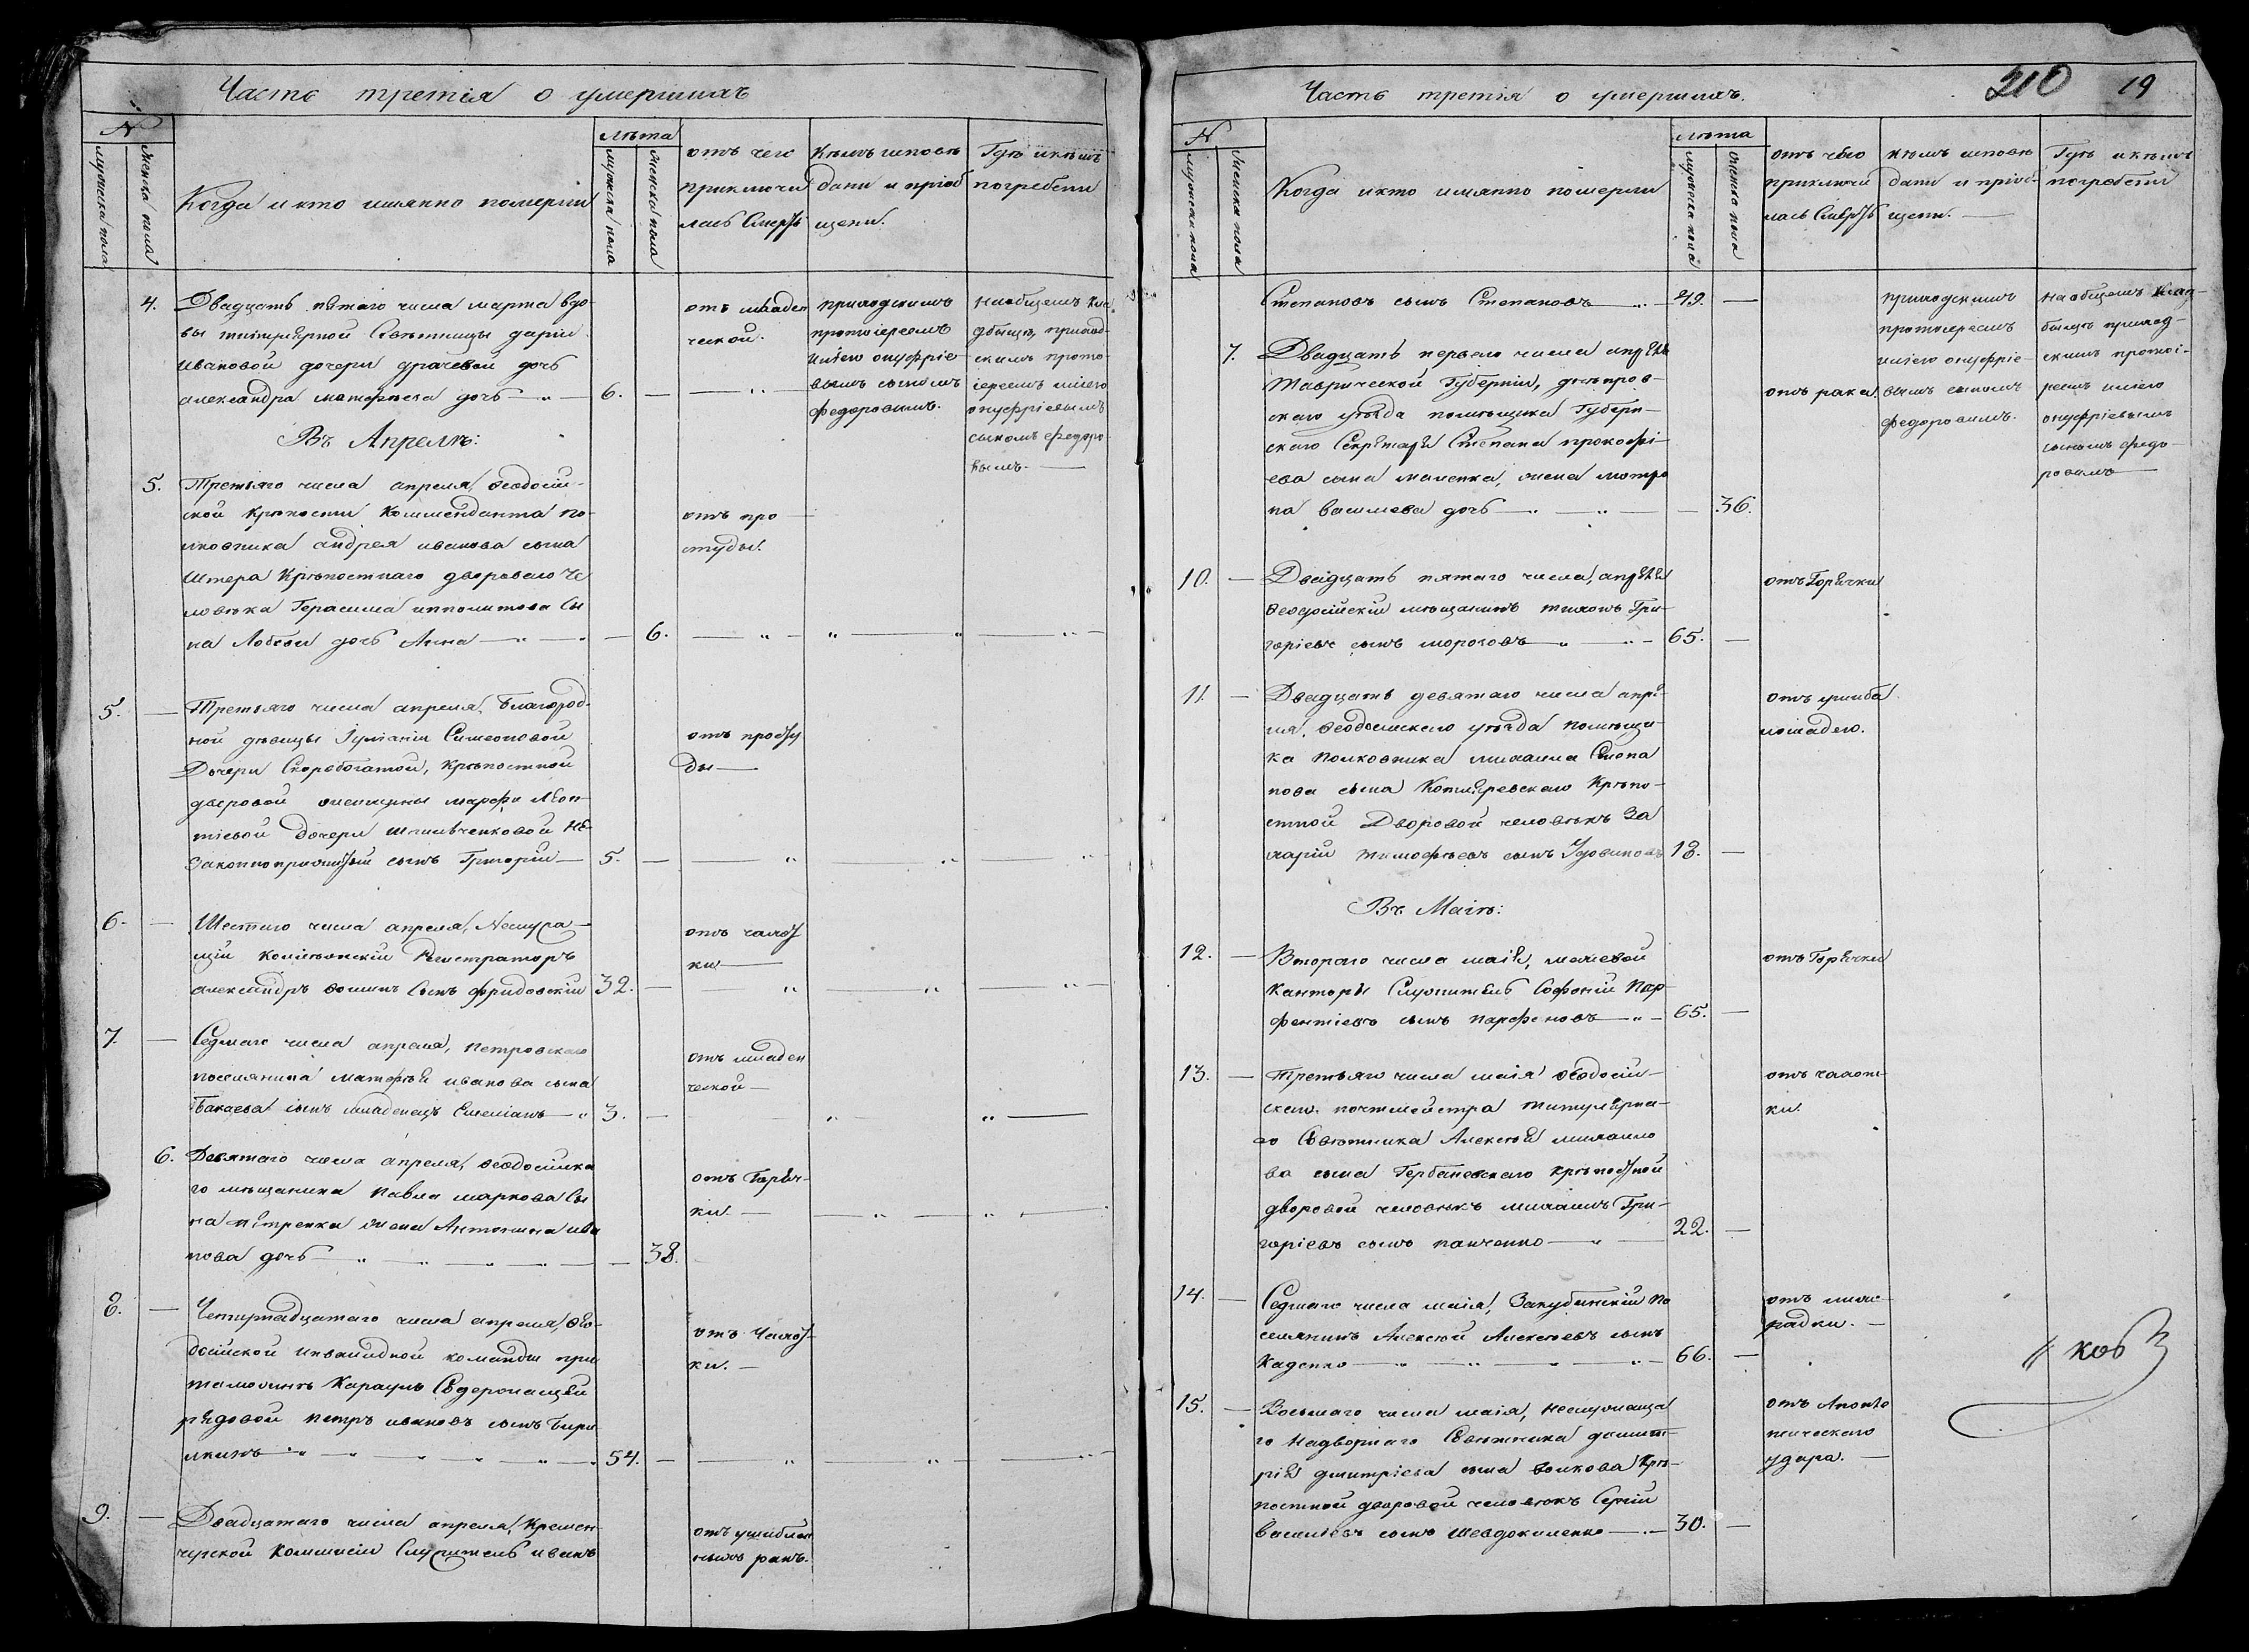 Часть третія о умершихъ
№
мужеска пола
женска пола
Когда и кто имянно померли
лѣта
мужеска пола
женска пола
отъ чего
приключи
лась Смерть
Кѣмъ исповѣ
даны и пріоб
щены.
Гдѣ и кѣмъ
погребены
4. Двадцать пятаго числа марта вдо-
вы титулярной Совѣтницы дарьи
ивановой дочери драчевой дочь
александра матфѣева дочь 6.
отъ младен
ческой.
приходскимъ
протоіереемъ
иліею онуфріе-
вымъ сыномъ
федоровымъ.
на общемъ кла
дбищѣ, приход-
скимъ прото-
іереемъ иліею
онуфріевымъ
сыномъ федоро
вымъ.
Въ Апрелѣ:
5. Третьяго числа апреля феодосій-
ской крѣпости Коммендантa по-
лковника андрея иванова сына
Штера крѣпостнаго двороваго че
ловѣка Герасима ипполитова сы
на дочь Анна 6.
отъ про
студы.
5. Третьяго числа апреля, Благород-
ной дѣвицы Іуліаніи Симеоновой
Дочери Скоробогатой, крѣпостной
дворовой женщины марфы Леон-
тіевой дочери не-
законноприжитый сынъ Григорій 5.
отъ просту
ды
6. Шестаго числа апреля, Неслужа-
щій колежскій Регистраторъ
александръ сынъ фридовскій 32.
отъ чахот
ки
7. Седмаго числа апреля, петровскаго
поселянина матфѣя иванова сына
Бакаева сынъ младенецъ Емеліанъ 3.
отъ младен
ческой
6. Девятаго числа апреля, феодосійска
го мѣщанина павла маркова сы
на петренка жена Антонина ива
нова дочь 38.
отъ Горяч-
ки.
8. Четырнадцатаго числа апреля, фео-
досійской инвалидной команды при
таможнѣ Караулъ Содержащей
рядовой петръ ивановъ сынъ Бири
лкинъ 54.
отъ Чахот
ки.
9. Двадцатаго числа апреля, Кремен-
чугской Коммисіи Служитель иванъ
отъ ушиблен
ныхъ ранъ.
Часть третія о умершихъ.
210 19
№
мужеска пола
женска пола
Когда и кто имянно померли
лѣта
мужеска пола
женска пола
отъ чего
приключи
лась Смерть
кѣмъ исповѣ
даны и пріоб-
щены.
Гдѣ и кѣмъ
погребены
Степановъ сынъ Степановъ 49.
приходскимъ
протоіереемъ
иліею онуфріе-
вымъ сыномъ
федоровымъ.
на общемъ клад-
бищѣ приход-
скимъ протоі-
реемъ иліею
онуфріевымъ
сыномъ федо-
ровымъ
7. Двадцать перваго числа апреля
Таврической Губерніи, днѣпров-
скаго уѣзда помѣщика Губерн-
скаго Секретаря Степана прокофі-
ева сына жена матро
на васильева дочь 36.
отъ рака.
10. Двадцать пятаго числа, апреля
феодосійскій мѣщанинъ тихонъ Гри-
горіевъ сынъ мороховъ 65.
отъ Горячки
11. Двадцать девятаго числа апре-
ля, феодосійскаго уѣзда помѣщи-
ка полковника михаила Степа
нова сына Котляревскаго крѣпо-
стной Дворовой человѣкъ За
харій тимофѣевъ сынъ 18.
отъ ушиба
лошадью.
Въ Маіѣ:
12. Втораго числа маія, межевой
Канторы Служитель Софоній Пар-
фентіевъ сынъ парфеновъ 65.
отъ Горячки
13. Третьяго числа маія феодосій-
скаго почтмейстра титулярна-
го Совѣтника Алексѣя михаило
ва сына Гербаневскаго крѣпостной
дворовой человѣкъ михаилъ Гри-
горіевъ сынъ панченко 22.
отъ чахот-
ки.
14. Седмаго числа маія, Закубанскій по
селянинъ Алексѣй Алексѣевъ сынъ
каденко 66.
отъ лихо-
радки.
15. Восьмаго числа маія, неслужаща
го надворнаго Совѣтника димит-
рія димитріева сына волкова крѣ-
постной дворовой человѣкъ Сергій
васильевъ сынъ 30.
отъ Апопле
ктическаго
удара.
ковъ